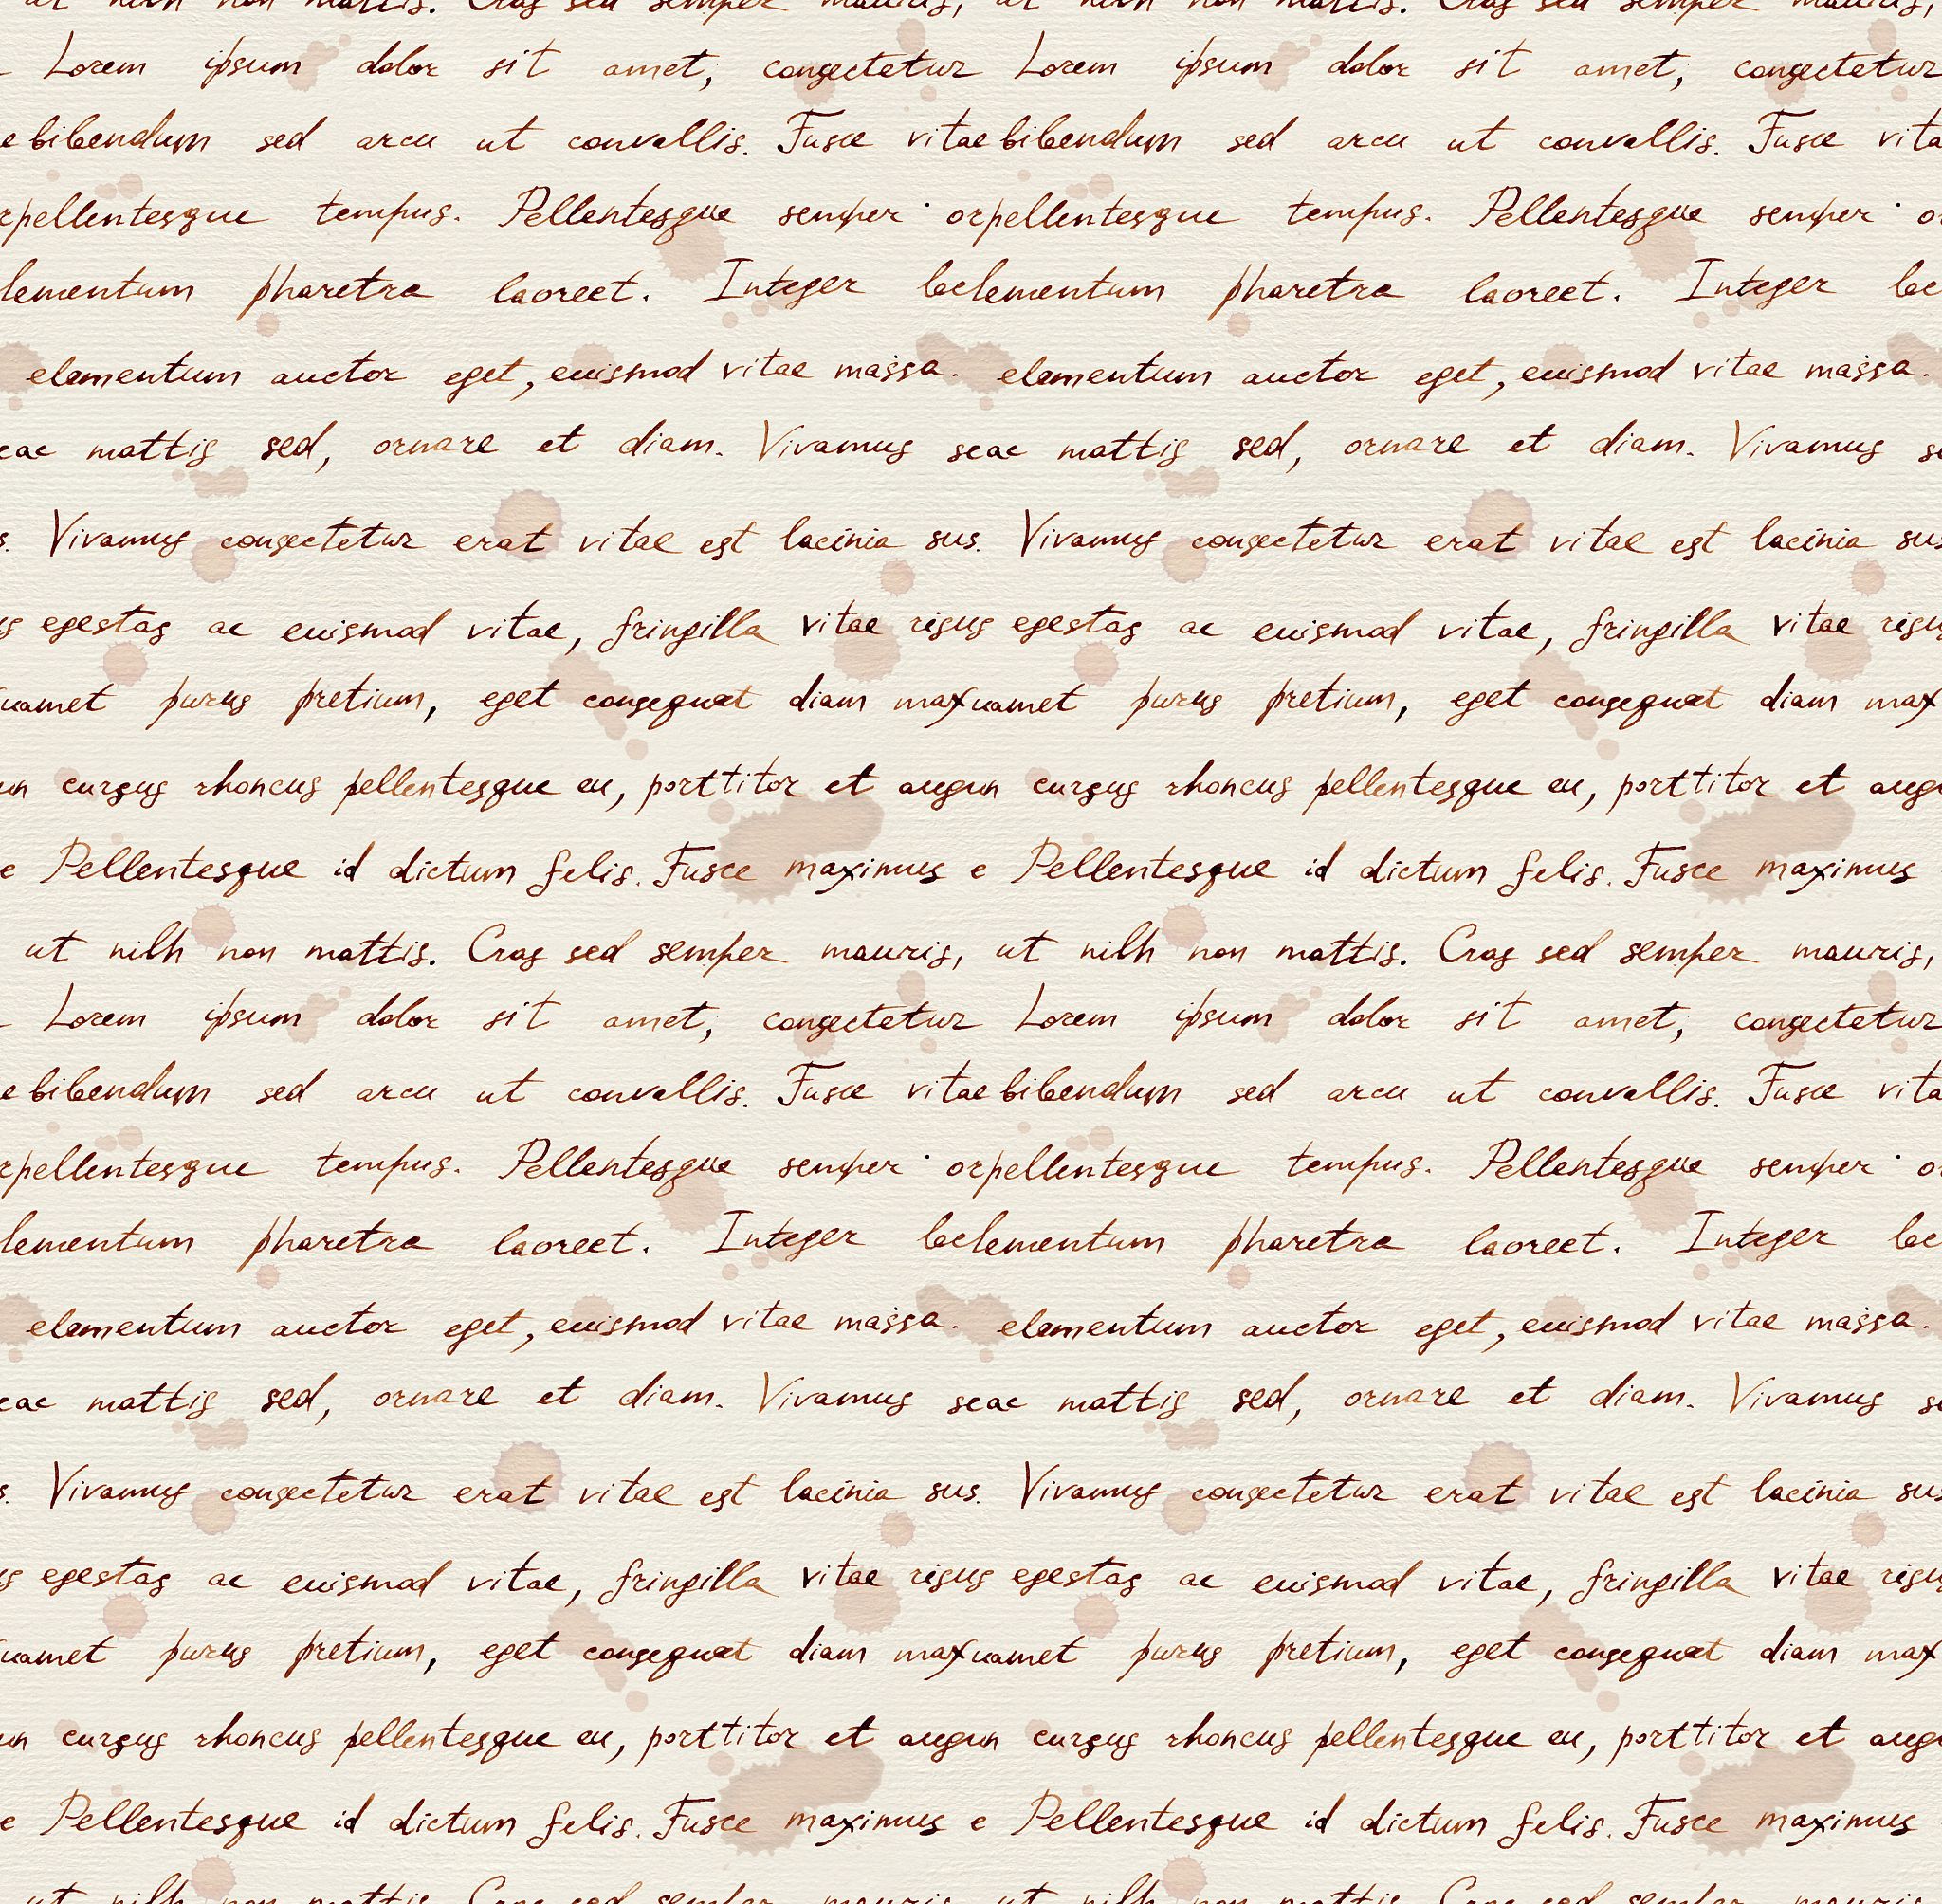 ut nilh non mattis. Cras sed semper mauris, ut nilh non mattis. Cras sed semper mauris,
Lorem ipsum dolor sit amet, consectetur Lorem ipsum dolor sit amet, consectetur
e bibendum sed arcu ut convallis. Fusce vitae bibendum sed arcu ut convallis. Fusce vita
rpellentesque tempus. Pellentesque semper orpellentesque tempus. Pellentesque semper or
lementum pharetra laoreet. Integer leelementum pharetra laoreet. Integer lee
elementum auctor eget, euismod vitae massa. elementum auctor eget, euismod vitae massa.
eac mattis sed, ornare et diam. Vivamus seac mattis sed, ornare et diam. Vivamus se
s. Vivamus consectetur erat vitae est lacinia sus. Vivamus consectetur erat vitae est lacinia sus
us egestas ac euismod vitae, fringilla vitae risus egestas ac euismod vitae, fringilla vitae risus
uamet purus pretium, eget consequat diam maxuamet purus pretium, eget consequat diam max
un cursus rhoncus pellentesque eu, porttitor et augun cursus rhoncus pellentesque eu, porttitor et augu
e Pellentesque id dictum felis. Fusce maximus e Pellentesque id dictum felis. Fusce maximus
ut nilh non mattis. Cras sed semper mauris, ut nilh non mattis. Cras sed semper mauris,
Lorem ipsum dolor sit amet, consectetur Lorem ipsum dolor sit amet, consectetur
e bibendum sed arcu ut convallis. Fusce vitae bibendum sed arcu ut convallis. Fusce vita
rpellentesque tempus. Pellentesque semper orpellentesque tempus. Pellentesque semper or
lementum pharetra laoreet. Integer leelementum pharetra laoreet. Integer lee
elementum auctor eget, euismod vitae massa. elementum auctor eget, euismod vitae massa.
eac mattis sed, ornare et diam. Vivamus seac mattis sed, ornare et diam. Vivamus se
s. Vivamus consectetur erat vitae est lacinia sus. Vivamus consectetur erat vitae est lacinia sus
us egestas ac euismod vitae, fringilla vitae risus egestas ac euismod vitae, fringilla vitae risus
uamet purus pretium, eget consequat diam maxuamet purus pretium, eget consequat diam max
un cursus rhoncus pellentesque eu, porttitor et augun cursus rhoncus pellentesque eu, porttitor et augu
e Pellentesque id dictum felis. Fusce maximus e Pellentesque id dictum felis. Fusce maximus
ut nilh non mattis. Cras sed semper mauris, ut nilh non mattis. Cras sed semper mauris